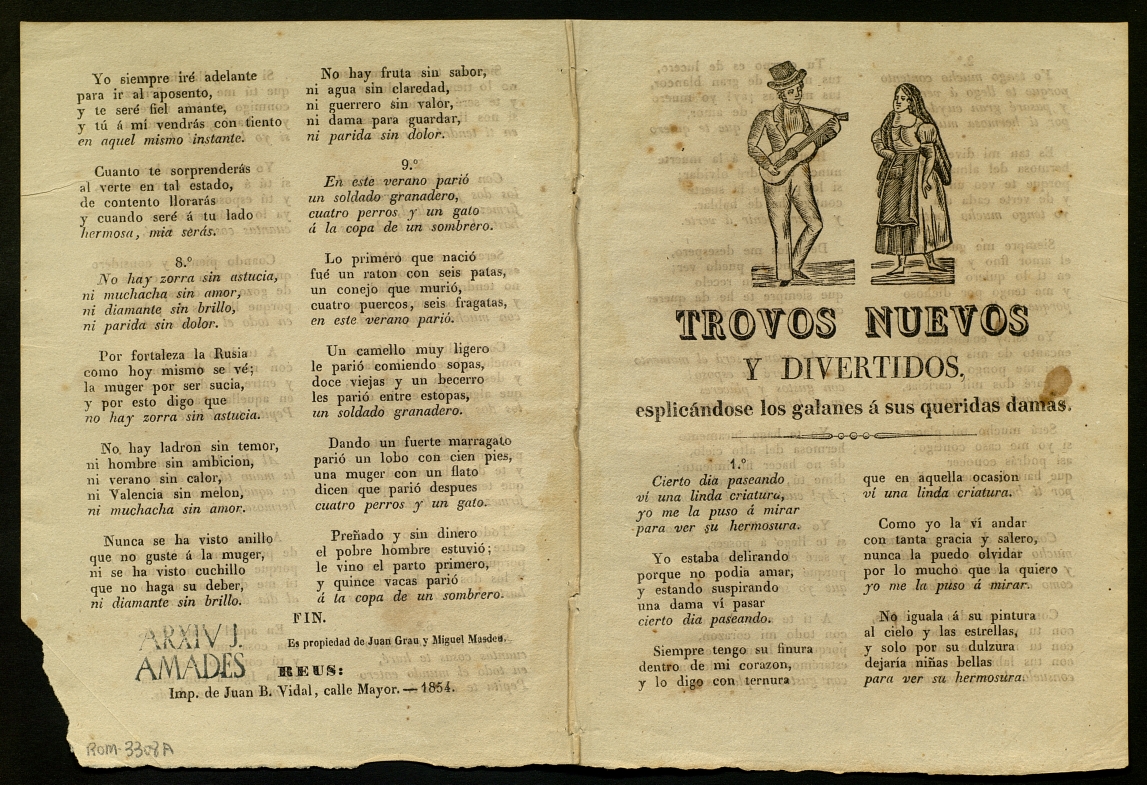 Yo siempre iré adelante
para ir al aposento,
y te seré fiel amante,
y tú á mí vendrás con tiento
en aquel mismo instante.
Cuanto te sorprenderás
al verte en tal estado,
de contento llorarás
y cuando seré á tu lado
hermosa, mia serás.
8.º
No hay zorra sin astucia,
ni muchacha sin amor,
ni diamante sin brillo,
ni parida sin dolor.
Por fortaleza la Rusia
como hoy mismo se vé;
la muger por ser sucia,
y por esto digo que
no hay zorra sin astucia.
No hay ladron sin temor,
ni hombre sin ambicion,
ni verano sin calor,
ni Valencia sin melon,
ni muchacha sin amor.
Nunca se ha visto anillo
que no guste á la muger,
ni se ha visto cuchillo
que no haga su deber,
ni diamante sin brillo.
No hay fruta sin sabor,
ni agua sin claredad,
ni guerrero sin valor,
ni dama para guardar,
ni parida sin dolor.
9.º
En este verano parió
un soldado granadero,
cuatro perros y un gato
á la copa de un sombrero.
Lo primero que nació
fué un raton con seis patas,
un conejo que murió,
cuatro puercos, seis fragatas,
en este verano parió.
Un camello muy ligero
le parió comiendo sopas,
doce viejas y un becerro
les parió entre estopas,
un soldado granadero.
Dando un fuerte marragato
parió un lobo con cien pies,
una muger con un flato
dicen que parió despues
cuatro perros y un gato.
Preñado y sin dinero
el pobre hombre estuvió;
le vino el parto primero,
y quince vacas parió
á la copa de un sombrero.
FIN.
Es propiedad de Juan Grau y Miguel Masdeu.
REUS:
Imp. de Juan B. Vidal, calle Mayor.—1854.
ARXIU J.
AMADES
ROM-3308A
TROVOS NUEVOS
Y DIVERTIDOS,
esplicándose los galanes á sus queridas damas.
1.º
Cierto dia paseando
ví una linda criatura,
yo me la puso á mirar
para ver su hermosura.
Yo estaba delirando
porque no podia amar,
y estando suspirando
una dama ví pasar
cierto dia paseando.
Siempre tengo su finura
dentro de mi corazon,
y lo digo con ternura
que en aquella ocasion
ví una linda criatura.
Como yo la ví andar
con tanta gracia y salero,
nunca la puedo olvidar
por lo mucho que la quiero
yo me la puso á mirar.
No iguala á su pintura
al cielo y las estrellas,
y solo por su dulzura
dejaría niñas bellas
para ver su hermosura.